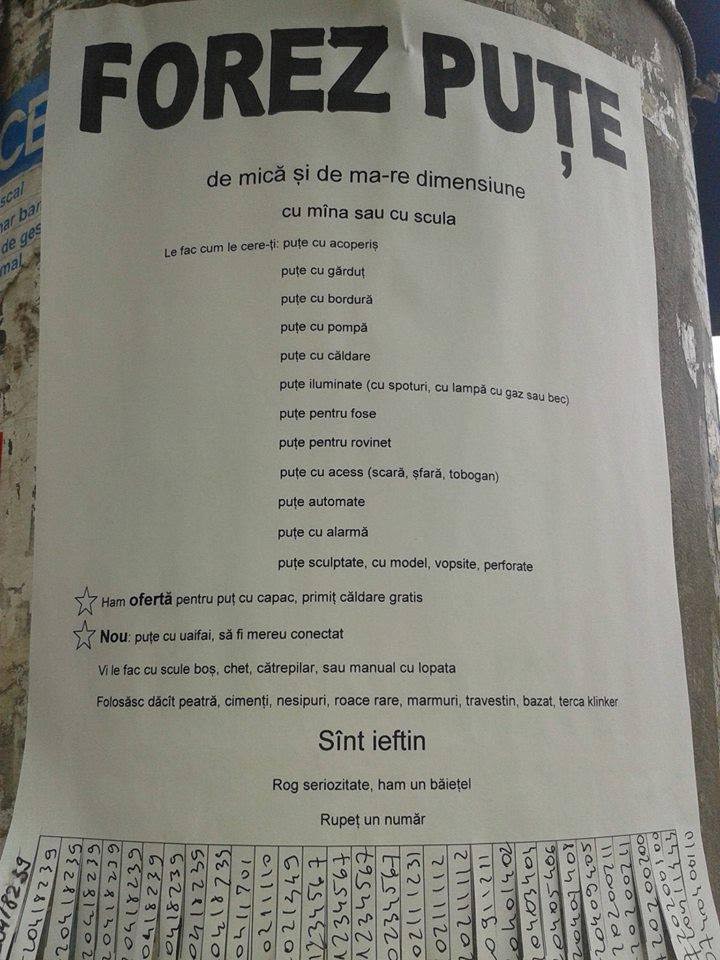 FOREZ PUȚE
de mică și de ma-re dimensiune
cu mîna sau cu scula
Le fac cum le cere-ți: puțe cu acoperiș
puțe cu gărduț
puțe cu bordură
puțe cu pompă
puțe cu căldare
puțe iluminate (cu spoturi, cu lampă cu gaz sau bec)
puțe pentru fose
puțe pentru rovinet
puțe cu acess (scară, șfară, tobogan)
puțe automate
puțe cu alarmă
puțe sculptate, cu model, vopsite, perforate
Ham ofertă pentru puț cu capac, primiț căldare gratis
Nou: puțe cu uaifai, să fi mereu conectat
Vi le fac cu scule boș, chet, cătrepilar, sau manual cu lopata
Folosăsc dăcît peatră, cimenți, nesipuri, roace rare, marmuri, travestin, bazat, terca klinker
Sînt ieftin
Rog seriozitate, ham un băiețel
Rupeț un număr
20418239
20418239
20418239
20418239
20418239
20418239
20418239
20418239
20418239
20411701
0211110
021349
1234567
1234567
1234567
0234567
02111231
02111112
02111112
0911211
20401402
20403404
20405406
20407408
20409405
20200211
20200241
20200200
CE
scal
nar bar
de ges
mal